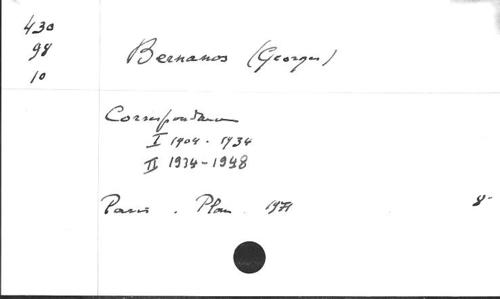 430
98
10
Bernanos (Georges)
Correspondance
I 1904 - 1934
II 1934-1948
Paris . Plon . 1971
8-